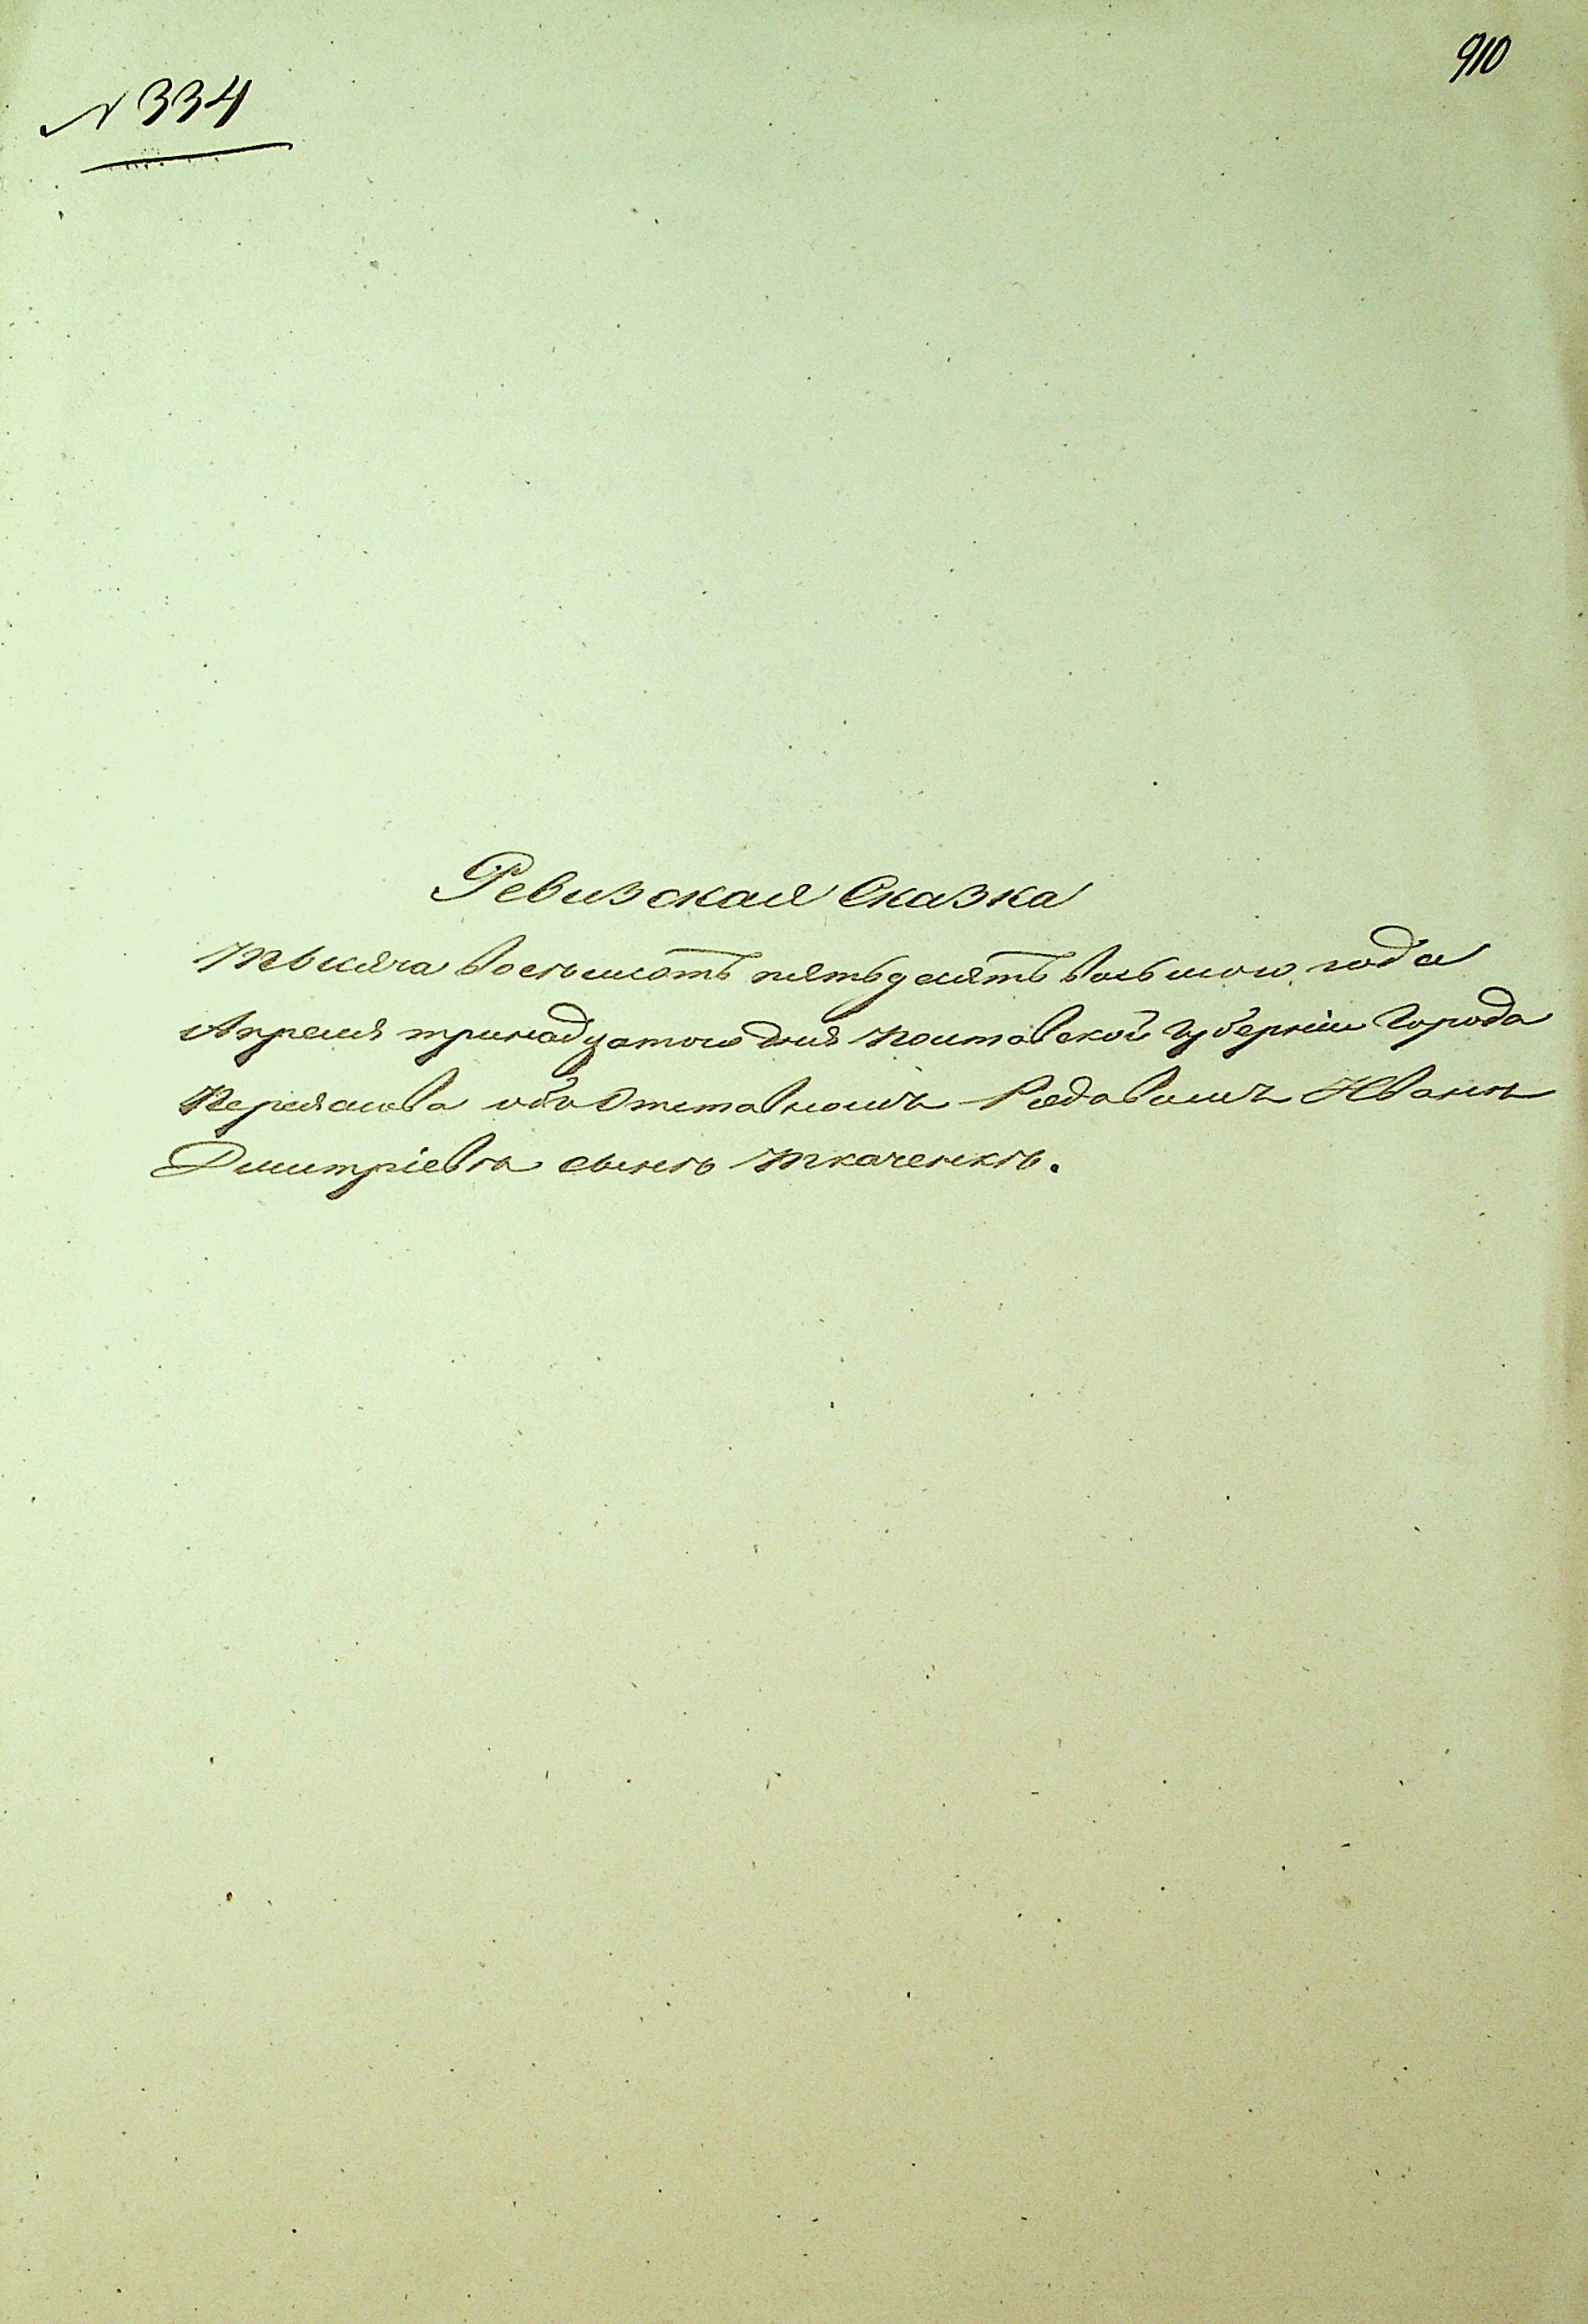 910
N 334
Ревизская Сказка
Тысяча восемьсотъ пятьдесятъ восьмого года
Апреля тринадцатого дня Полтавской Губерніи Города
Переяслова обо Отставномъ Рядовомъ Иванѣ
Дмитріевѣ сынѣ Ткаченкѣ.